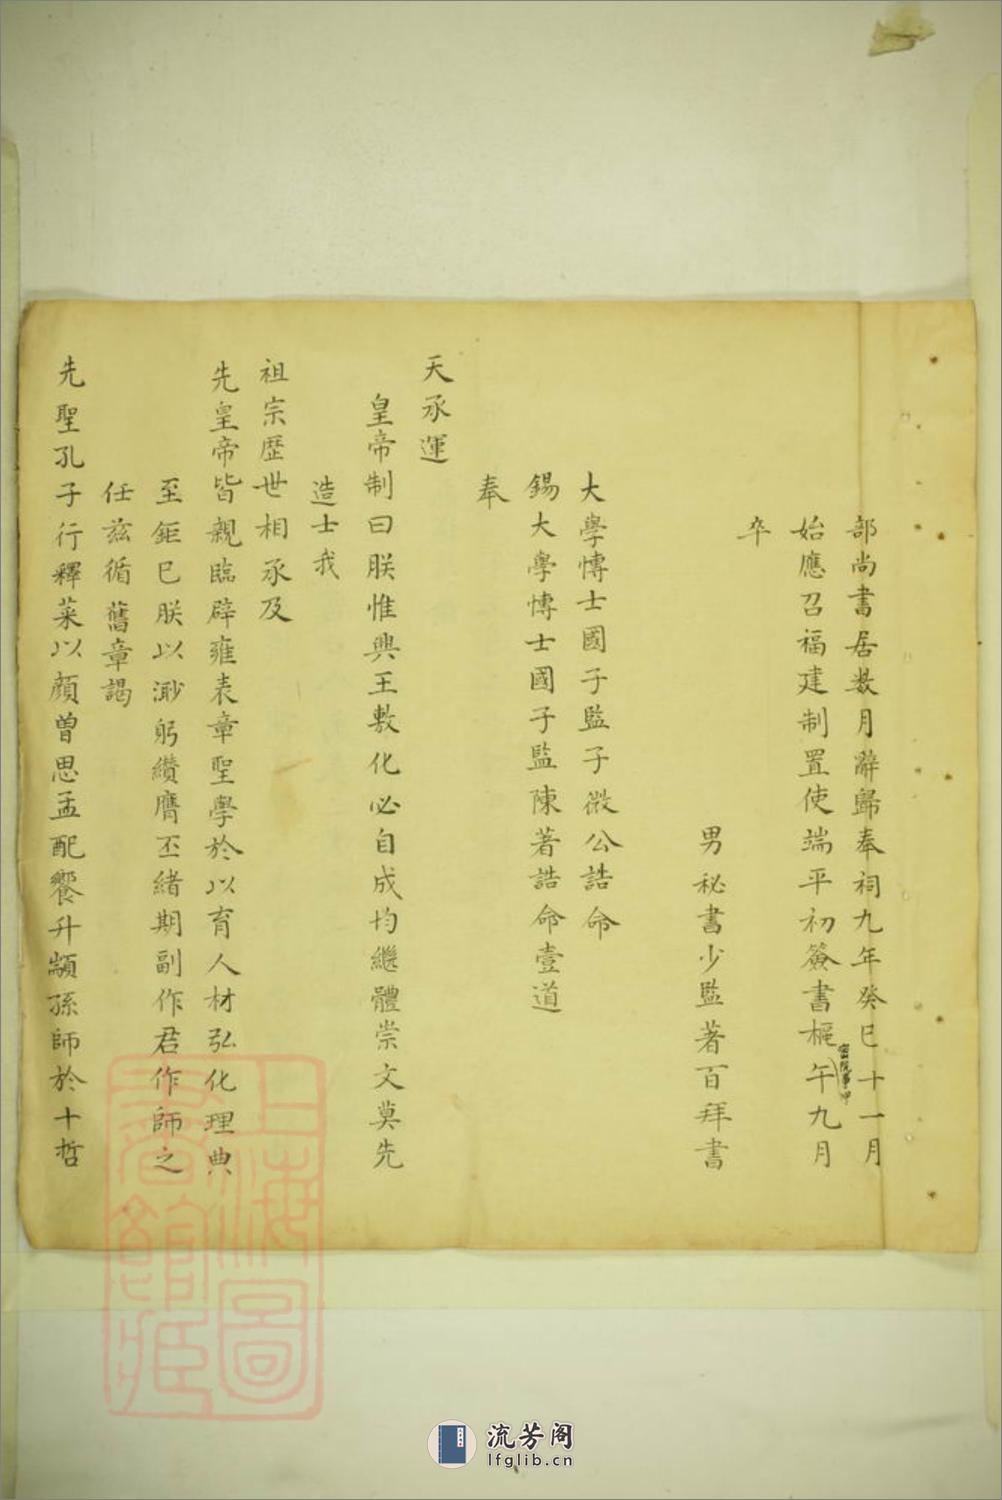 部尚書居数月辭歸奉祠九年癸巳十一月
始應召福建制置使端平初簽書樞密院事甲午九月
卒
男秘書少監著百拜書
大學博士國子監子微公誥命
錫大學博士國子監陳著誥命壹道
奉
天承運
皇帝制曰朕惟興王敷化必自成均繼體崇文莫先
造士我
祖宗歷世相承及
先皇帝皆親臨辟雍表章聖學於以育人材弘化理典
至鉅巳朕以渺躬纘膺丕緒期副作君作師之
任兹循舊章謁
先聖孔子行釋菜以顏曾思孟配饗升顓孫師於十哲
上海圖書館藏
流芳阁
lfglib.cn